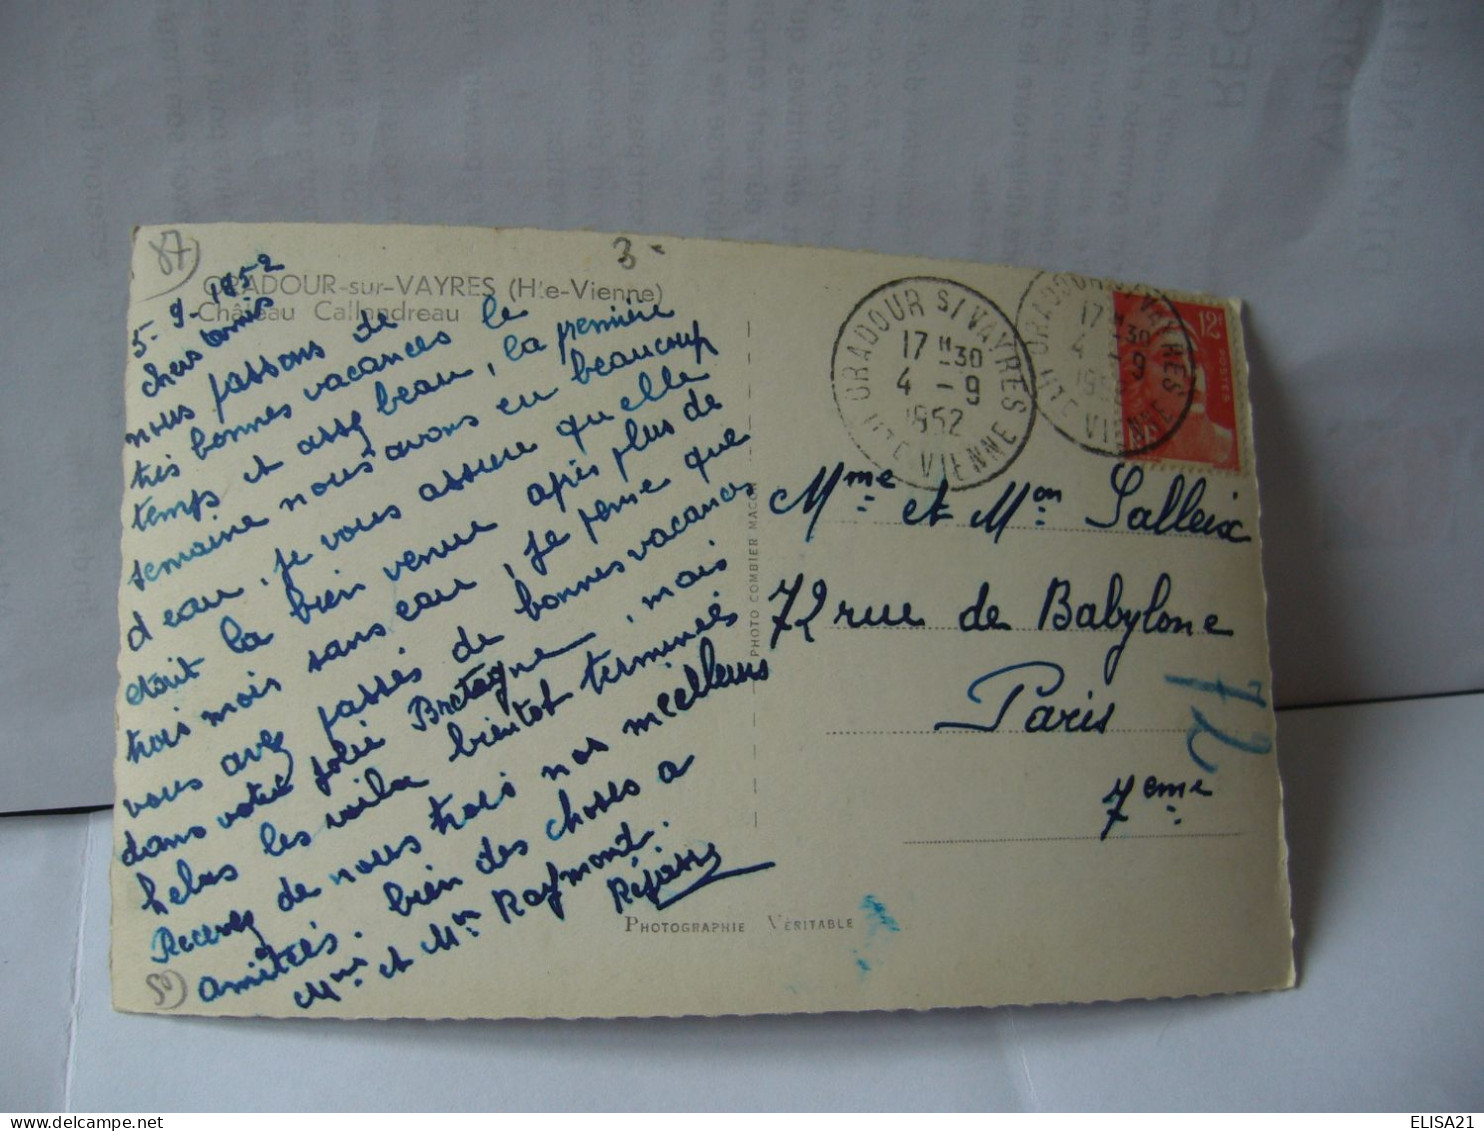 87
3
ORADOUR-sur-VAYRES (Hte-Vienne)
Château Callandreau
5-9-1952
chers amis
nous passons de
très bonnes vacances le
temps et assez beau, la première
semaine nous avons eu beaucoup
d'eau, je vous assure qu'elle
était la bien venue après plus de
trois mois sans eau, je pense que
vous avez passés de bonnes vacances
dans votre jolie Bretagne, mais
helas les voila bientot terminées
Recevez de nous trois nos meilleurs
amitiés. bien des choses a
Mme et Mr Raymont.
PHOTO COMBIER MACON
PHOTOGRAPHIE VÉRITABLE
ORADOUR S/ VAYRES
17 H -30
4 - 9
1952
HTE VIENNE
ORADOUR S/ VAYRES
17 H -30
4 - 9
1952
HTE VIENNE
12F
POSTES
Mme et Mon Salleix
72 rue de Babylone
Paris
7eme
72
50
ELISA21